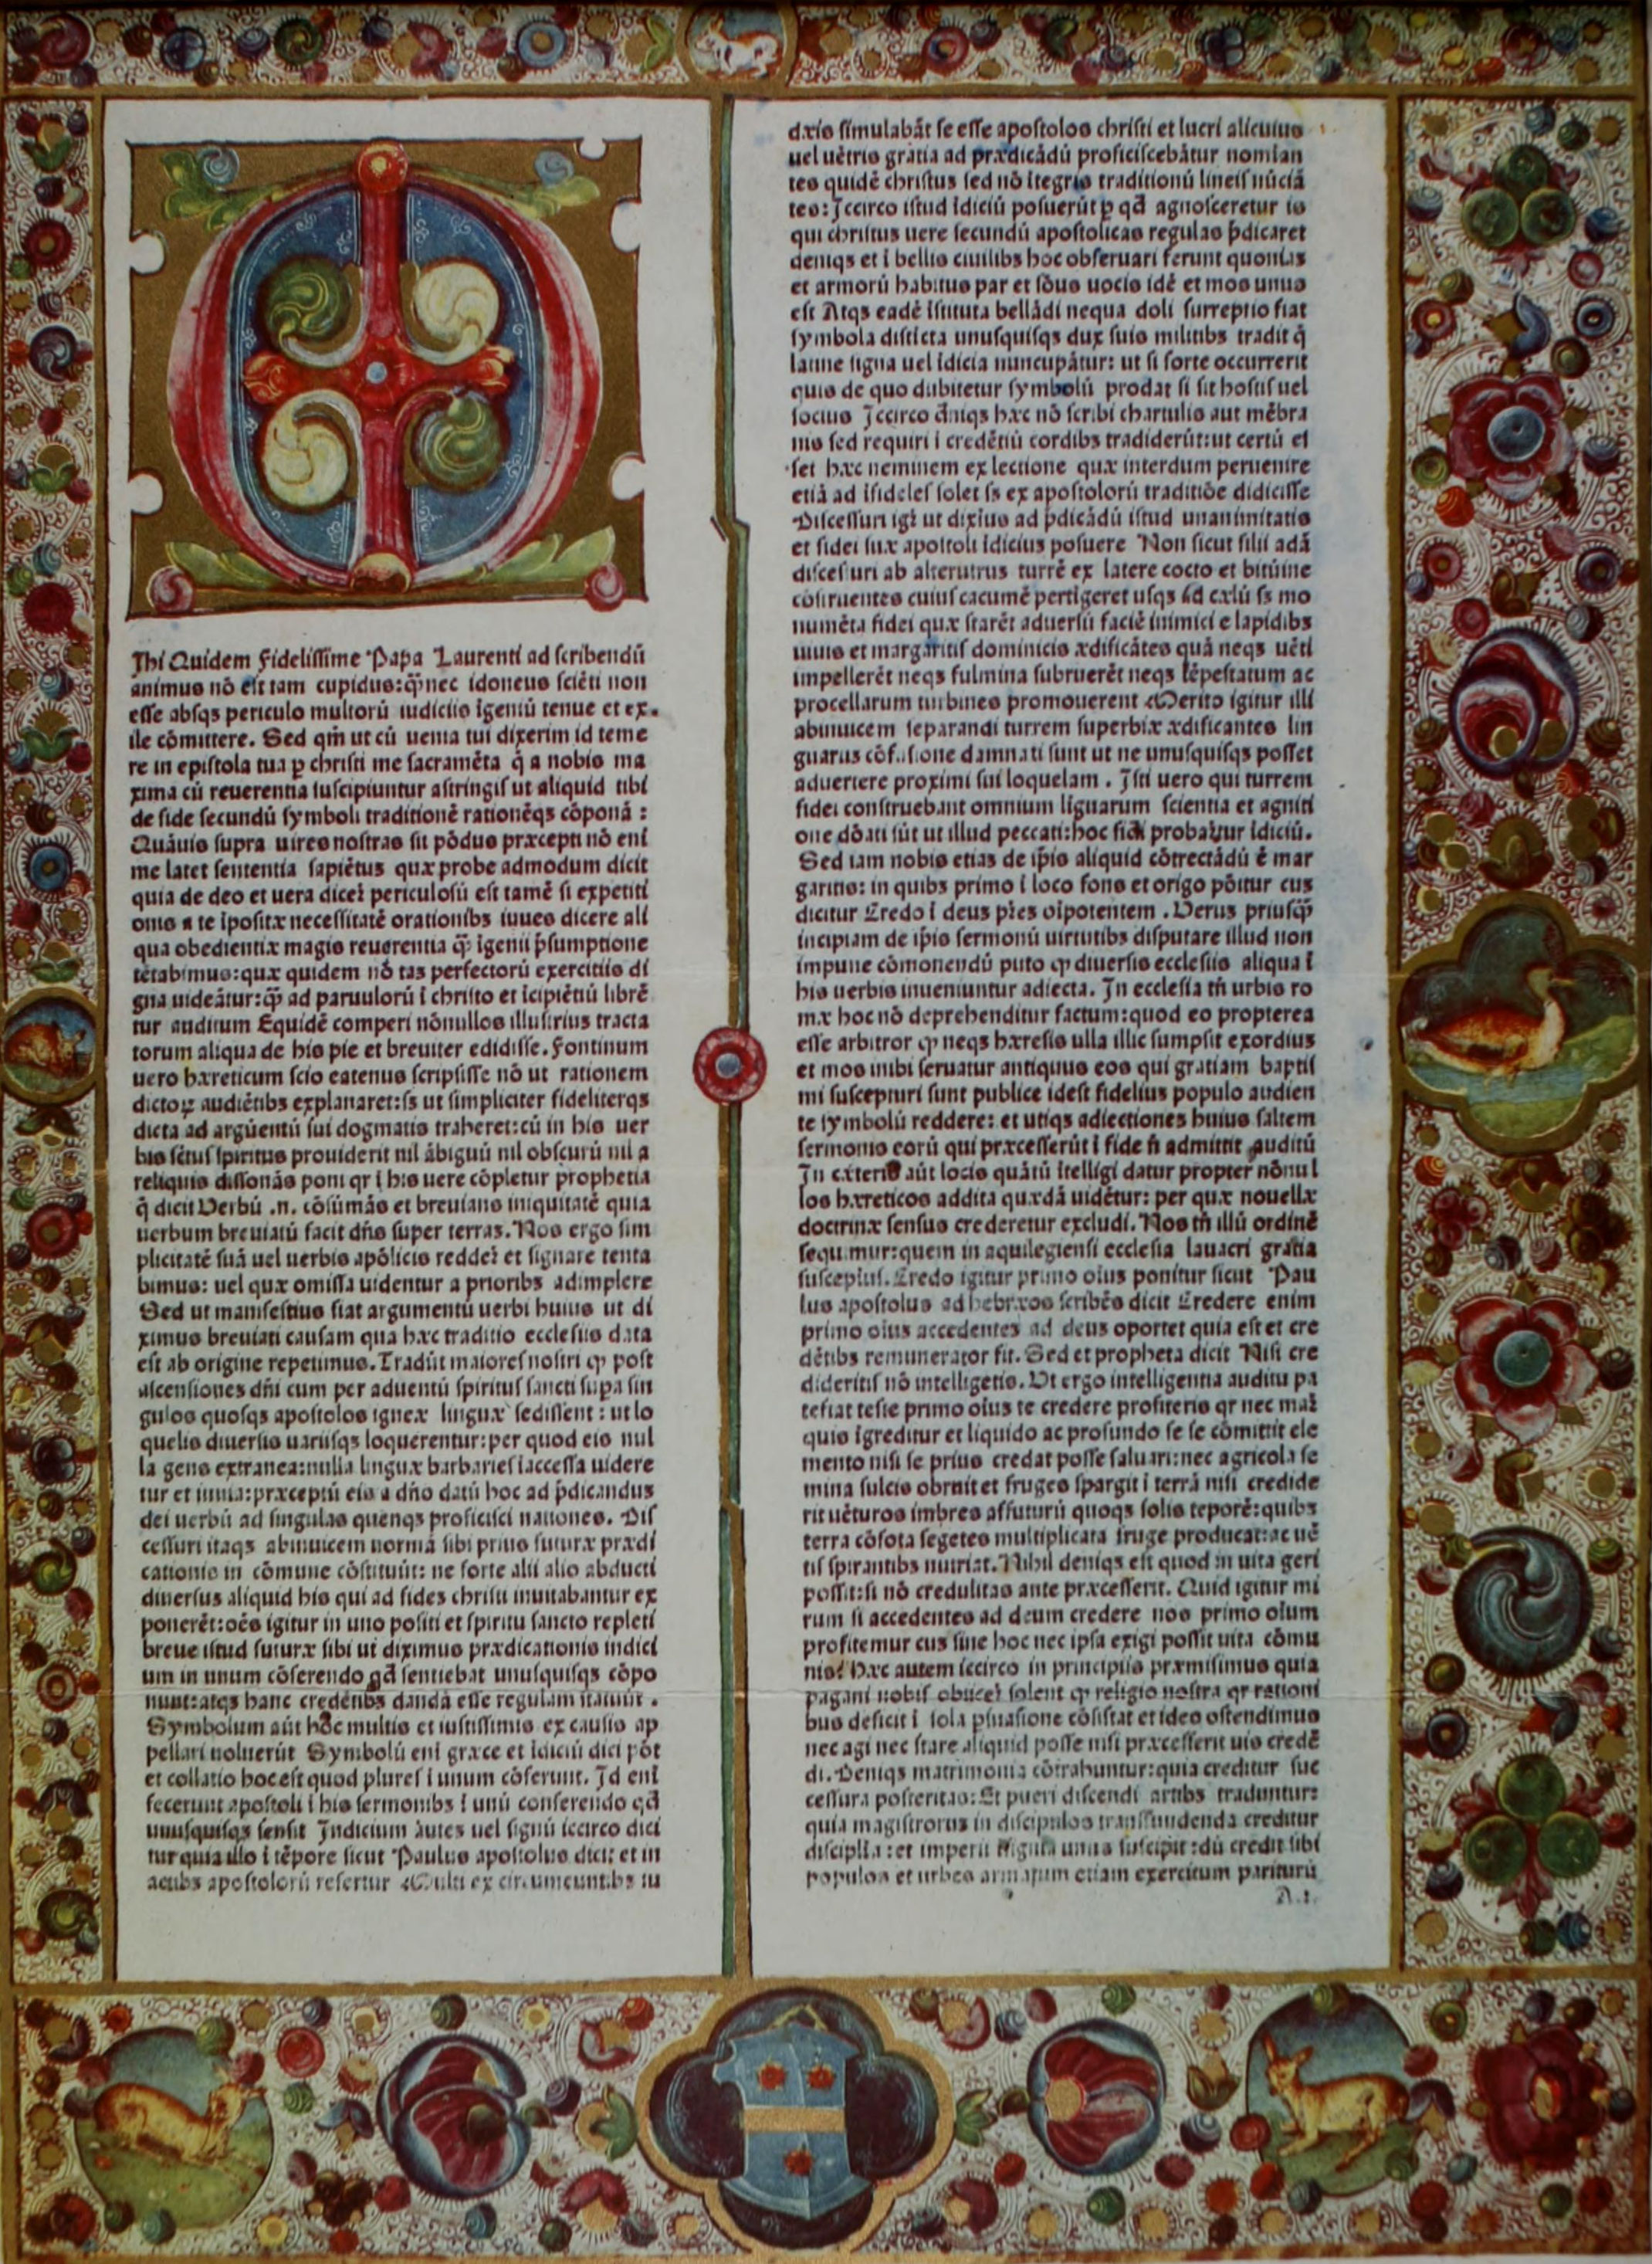 M
Ihi Quidem Fidelissime Papa Laurenti ad scribendū
animus nō est tam cupidus:q̄ nec idoneus sciēti non
esse absqs periculo multorū iudiciis īgeniū tenue et ex
ile cōmittere. Sed qm̄ ut cū uenia tui dixerim id teme
re in epistola tua p christi me sacramēta q̄ a nobis ma
xima cū reuerentia suscipiuntur astringis ut aliquid tibi
de fide secundū symboli traditionē rationēqs cōponā :
Quāuis supra uires nostras sit pōdus præcepti nō eni
me latet sententia sapiētus quæ probe admodum dicit
quia de deo et uera dicer periculosū est tamē si expetiti
onis a te īpositæ necessitatē orationibs iuues dicere ali
qua obedientiæ magis reuerentia q̄ īgenii p̄sumptione
tētabimus:quæ quidem nō tas perfectorū exercitiis di
gna uideātur:q̄ ad paruulorū ī christo et īcipiētiū librē
tur auditum Equidē comperi nōnullos illustrius tracta
torum aliqua de his pie et breuiter edidisse. Fontinum
uero hæreticum scio eatenus scripsisse nō ut rationem
dictoꝝ audiētibs explanaret:ss ut simpliciter fideliterqs
dicta ad argūentū sui dogmatis traheret:cū in his uer
bis sētus spiritus prouiderit nil ābiguū nil obscurū nil a
reliquis dissonās poni qr ī his uere cōpletur prophetia
q̄ dicit Verbū .n. cōsūmās et breuians iniquitatē quia
uerbum breuiatū facit dn̄s super terras. Nos ergo sim
plicitatē suā uel uerbis apōlicis redder et signare tenta
bimus: uel quæ omissa uidentur a prioribs adimplere
Sed ut manifestius fiat argumentū uerbi huius ut di
ximus breuiati causam qua hæc traditio ecclesiis data
est ab origine repetimus. Tradūt maiores nostri ꝙ post
ascensiones dn̄i cum per aduentū spiritus sancti supa sin
gulos quosqs apostolos igneæ linguæ sedissent : ut lo
quelis diuersis uariisqs loquerentur:per quod eis nul
la gens extranea:nulla linguæ barbaries īaccessa uidere
tur et inuia:præceptū eis a dn̄o datū hoc ad p̄dicandus
dei uerbū ad singulas quenqs proficisci nationes. Dis
cessuri itaqs abinuicem normā sibi prius futuræ prædi
cationis in cōmune cōstituūt: ne forte alii alio abducti
diuersus aliquid his qui ad fides christi inuitabantur ex
ponerēt:oēs igitur in uno positi et spiritu sancto repleti
breue istud futuræ sibi ut diximus prædicationis indici
um in unum cōferendo qd̄ sentiebat unusquisqs cōpo
nunt:atqs hanc credētibs dandā esse regulam statuūt .
Symbolum aūt hoc multis et iustissimis ex causis ap
pellari uoluerūt Symbolū eni græce et īdiciū dici pōt
et collatio hoc est quod plures ī unum cōferunt. Id eni
fecerunt apostoli ī his sermonibs ī unū conferendo qd̄
unusquisqs sensit Indicium autes uel signū iccirco dici
tur quia illo ī tēpore sicut Paulus apostolus dicit et in
actibs apostolorū refertur Multi ex circumcuntibs iu
dæis simulabāt se esse apostolos christi et lucri alicuius
uel uētris gratia ad prædicādū proficiscebātur nomian
tes quidē christus sed nō ītegris traditionū lineis nūciā
tes: Iccirco istud īdiciū posuerūt p qd̄ agnosceretur is
qui christus uere secundū apostolicas regulas p̄dicaret
deniqs et ī bellis ciuilibs hoc obseruari ferunt quonias
et armorū habitus par et sōus uocis idē et mos unus
est Atqs eadē īstituta bellādi nequa doli surreptio fiat
symbola disticta unusquisqs dux suis militibs tradit q̄
latine signa uel īdicia nuncupātur: ut si forte occurrerit
quis de quo dubitetur symbolū prodat si sit hostis uel
socius Iccirco d̄niqs hæc nō scribi chartulis aut mēbra
nis sed requiri ī credētiū cordibs tradiderūt:ut certū es
set hæc neminem ex lectione quæ interdum peruenire
etiā ad īfideles solet ss ex apostolorū traditiōe didicisse
Discessuri igr ut dixius ad p̄dicādū istud unanimitatis
et fidei suæ apostoli īdicius posuere Non sicut filii adā
discessuri ab alterutrus turrē ex latere cocto et bitūine
cōstruentes cuius cacumē pertigeret usqs ad cælū ss mo
numēta fidei quæ starēt aduersū faciē inimici e lapidibs
uiuis et margaritis dominicis ædificātes quā neqs uēti
impellerēt neqs fulmina subruerēt neqs tēpestatum ac
procellarum turbines promouerent Merito igitur illi
abinuicem separandi turrem superbiæ ædificantes lin
guarus cōfusione damnati sunt ut ne unusquisqs posset
aduertere proximi sui loquelam . Isti uero qui turrem
fidei construebant omnium līguarum scientia et agniti
one dōati sūt ut illud peccati:hoc fidei probatur īdiciū.
Sed iam nobis etias de ip̄is aliquid cōtrectādū ē mar
garitis: in quibs primo ī loco fons et origo pōitur cus
dicitur Credo ī deus p̄res oīpotentem . Verus priusq̄
incipiam de ip̄is sermonū uirtutibs disputare illud non
impune cōmonendū puto ꝙ diuersis ecclesiis aliqua ī
his uerbis inueniuntur adiecta. In ecclesia tn̄ urbis ro
mæ hoc nō deprehenditur factum:quod eo propterea
esse arbitror ꝙ neqs hæresis ulla illic sumpsit exordius
et mos inibi seruatur antiquus eos qui gratiam baptis
mi suscepturi sunt publice idest fidelius populo audien
te symbolū reddere: et utiqs adiectiones huius saltem
sermonis eorū qui præcesserūt ī fide n̄ admittit auditū
In cæteris aūt locis quātū ītelligi datur propter nōnul
los hæreticos addita quædā uidētur: per quæ nouellæ
doctrinæ sensus crederetur excludi. Nos tn̄ illū ordinē
sequimur:quem in aquilegiensi ecclesia lauacri gratia
suscepius. Credo igitur primo oius ponitur sicut Pau
lus apostolus ad hebræos scribēs dicit Credere enim
primo oius accedentes ad deus oportet quia est et cre
dētibs remunerator fit. Sed et propheta dicit Nisi cre
dideritis nō intelligetis. Vt ergo intelligentia auditu pa
tefiat teste primo oius te credere profiteris qr nec mar
quis īgreditur et liquido ac profundo se se cōmittit ele
mento nisi se prius credat posse saluari:nec agricola se
mina sulcis obruit et fruges spargit ī terrā nisi credide
rit uēturos imbres affuturū quoqs solis teporē:quibs
terra cōfota segetes multiplicata fruge producat:ac uē
tis spirantibs nutriat. Nihil deniqs est quod in uita geri
possit:si nō credulitas ante præcesserit. Quid igitur mi
rum si accedentes ad deum credere nos primo oīum
profitemur cus sine hoc nec ipsa exigi possit uita cōmu
nis? Hæc autem iccirco in principiis præmisimus quia
pagani nobis obiicer solent ꝙ religio nostra qr rationi
bus deficit ī sola p̄suasione cōsistat et ideo ostendimus
nec agi nec stare aliquid posse nisi præcesserit uis credē
di. Deniqs matrimonia cōtrahuntur:quia creditur suc
cessura posteritas: Et pueri discendi artibs traduntur:
quia magistrorus in discipulos transfundenda creditur
disciplīa:et imperii īsignia unus suscipit:dū credit sibi
populos et urbes armatum etiam exercitum pariturū
A.i.